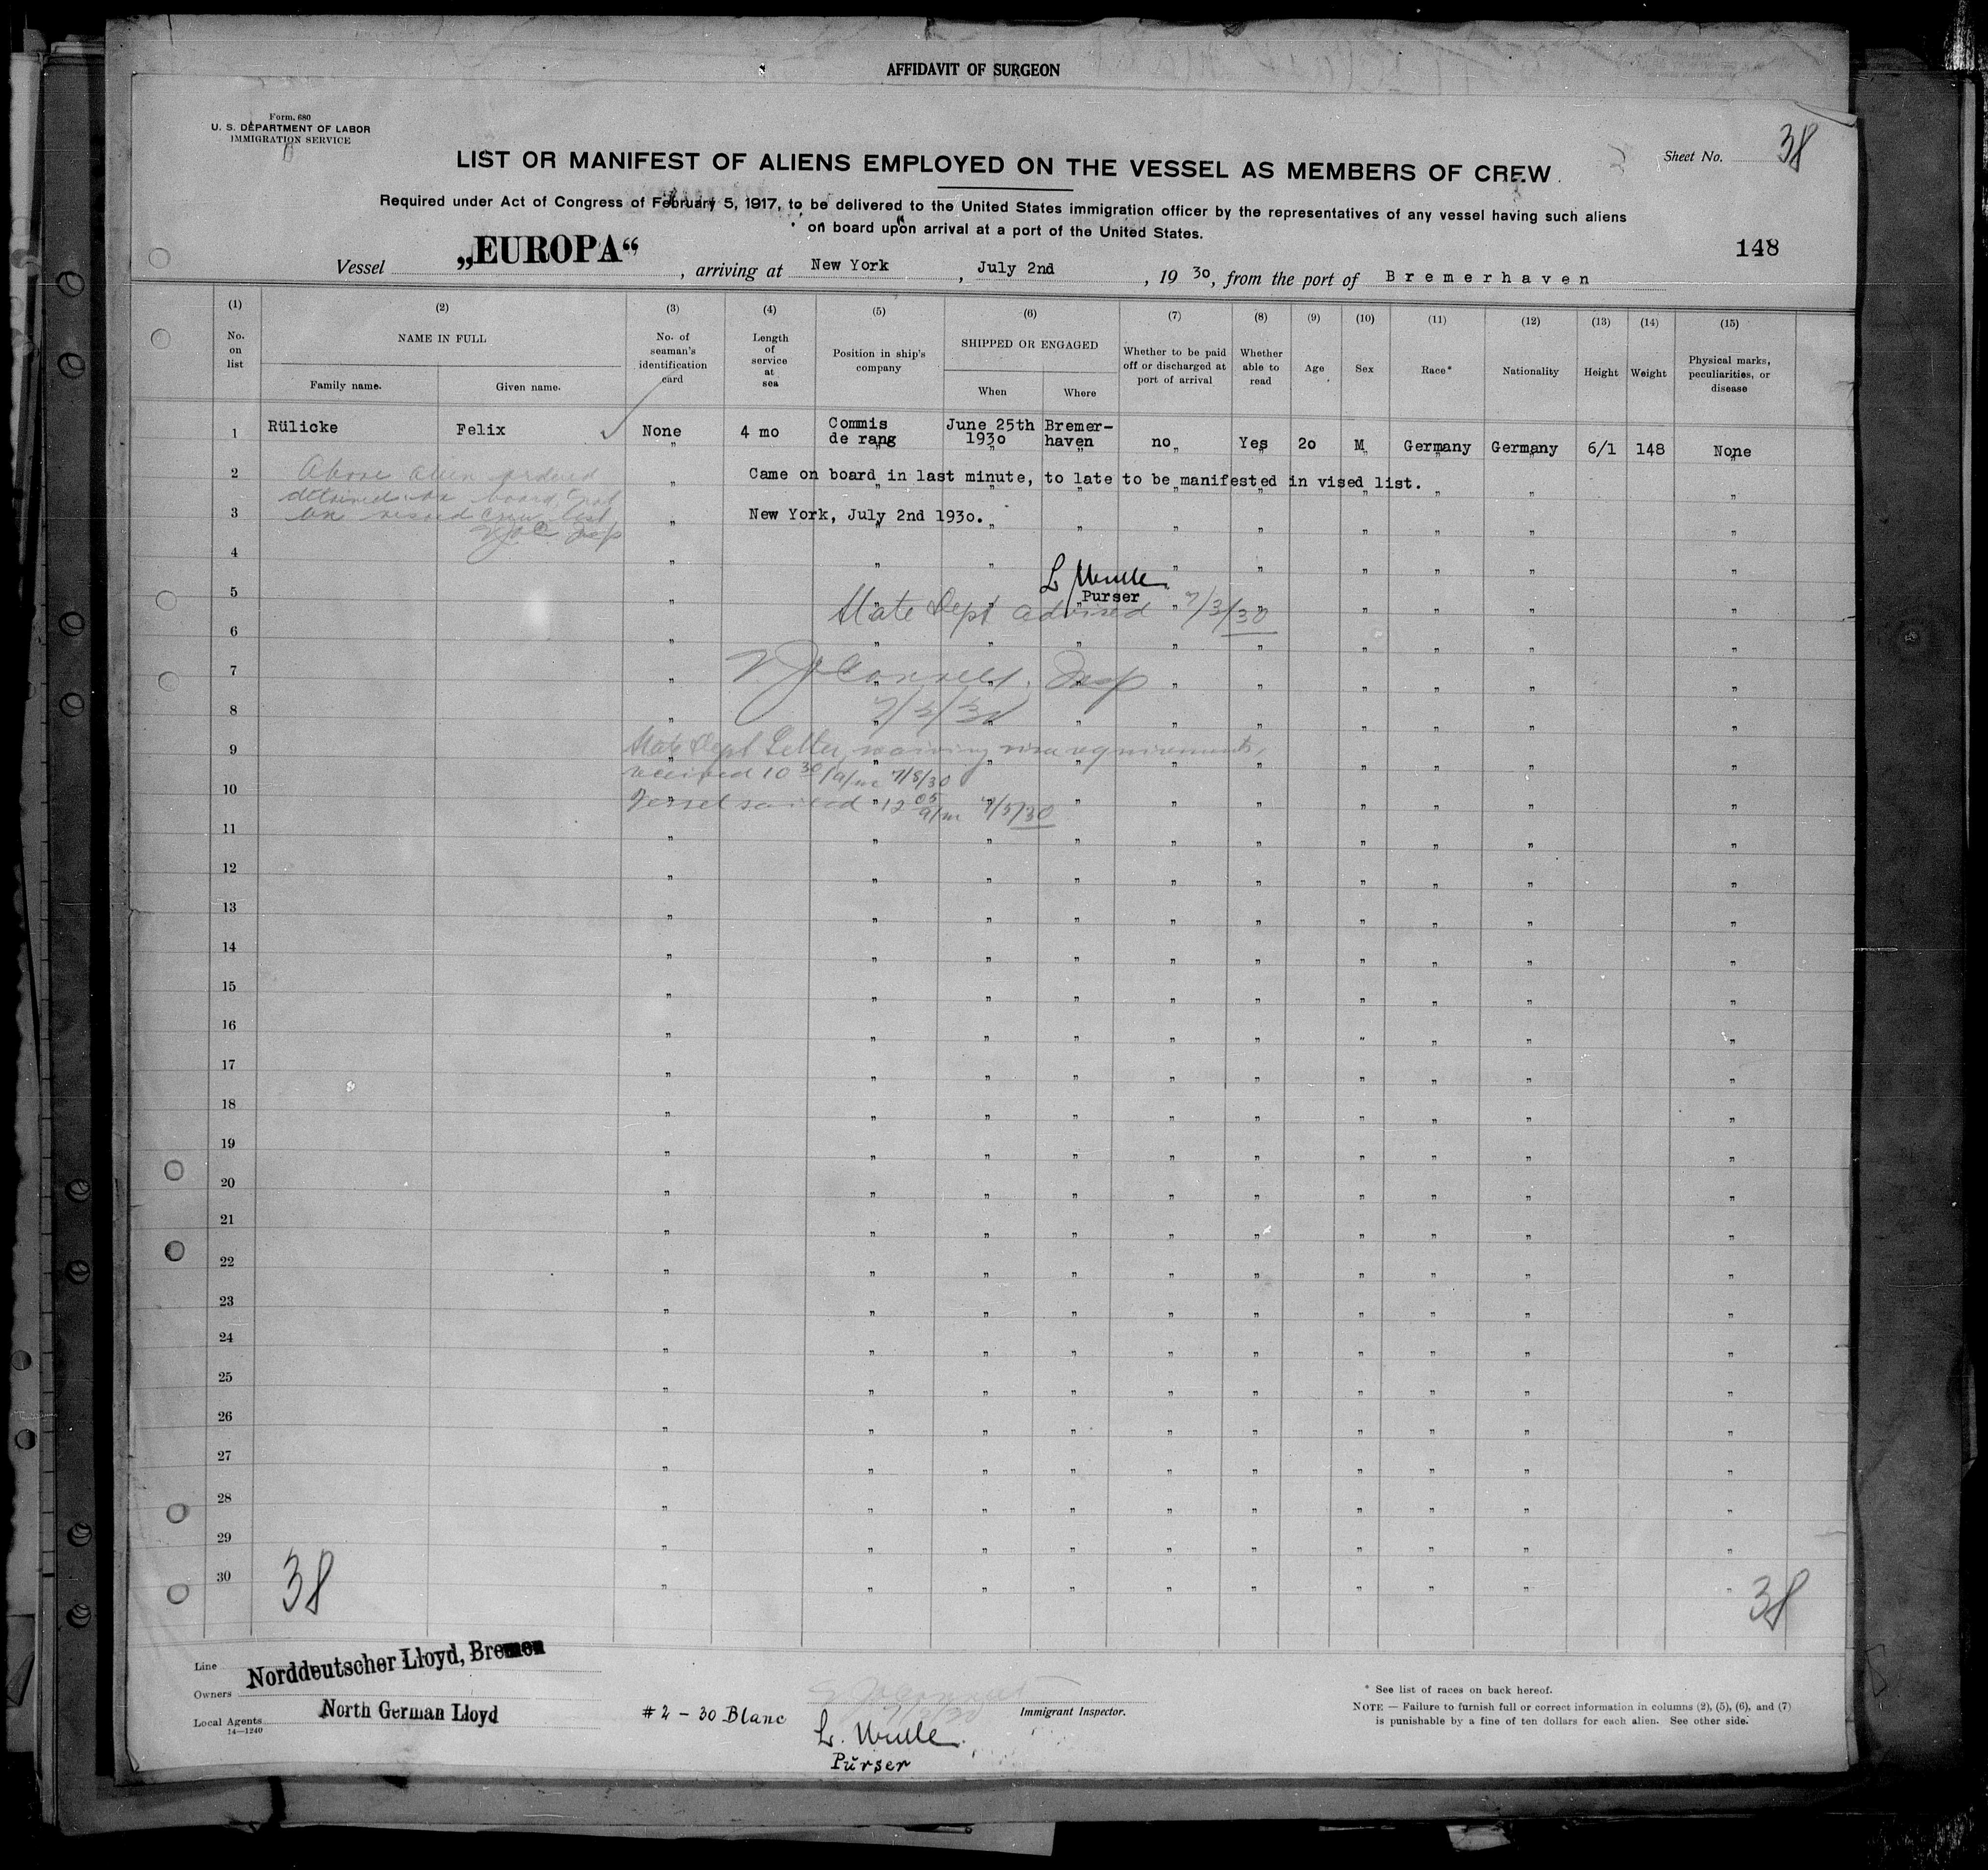 AFFIDAVIT OF SURGEON
Form. 680
U. S. DEPARTMENT OF LABOR
IMMIGRATION SERVICE
Sheet No. 38
LIST OR MANIFEST OF ALIENS EMPLOYED ON THE VESSEL AS MEMBERS OF CREW
Required under Act of Congress of February 5, 1917, to be delivered to the United States immigration officer by the representatives of any vessel having such aliens
on board upon arrival at a port of the United States.
148
Vessel „EUROPA“, arriving at New York, July 2nd, 19 30, from the port of Bremerhaven
(1) (2) (3) (4) (5) (6) (7) (8) (9) (10) (11) (12) (13) (14) (15)
No. on list
NAME IN FULL
Family name. Given name.
No. of seaman's identification card
Length of service at sea
Position in ship's company
SHIPPED OR ENGAGED
When Where
Whether to be paid off or discharged at port of arrival
Whether able to read
Age
Sex
Race*
Nationality
Height
Weight
Physical marks, peculiarities, or disease
1 Rülicke Felix ✓ None 4 mo Commis de rang June 25th 1930 Bremerhaven no Yes 20 M Germany Germany 6/1 148 None
Above alien ordered
detained on board, not
on visaed crew list
2 Came on board in last minute, to late to be manifested in vised list.
3 New York, July 2nd 1930.
4
Purser
5 State Dept advised 7/3/30
6
7 Insp
8 7/3/30
9 State Dept Letter, waiving visa requirements,
received 10 30 a/m 7/5/30
10 Vessel sailed 12 05 a/m 7/5/30
11
12
13
14
15
16
17
18
19
20
21
22
23
24
25
26
27
28
29
30
38
38
Line Norddeutscher Lloyd, Bremen
Owners
Local Agents North German Lloyd
14—1240
#2 - 30 Blanc
Immigrant Inspector.
Purser
* See list of races on back hereof.
NOTE — Failure to furnish full or correct information in columns (2), (5), (6), and (7)
is punishable by a fine of ten dollars for each alien. See other side.